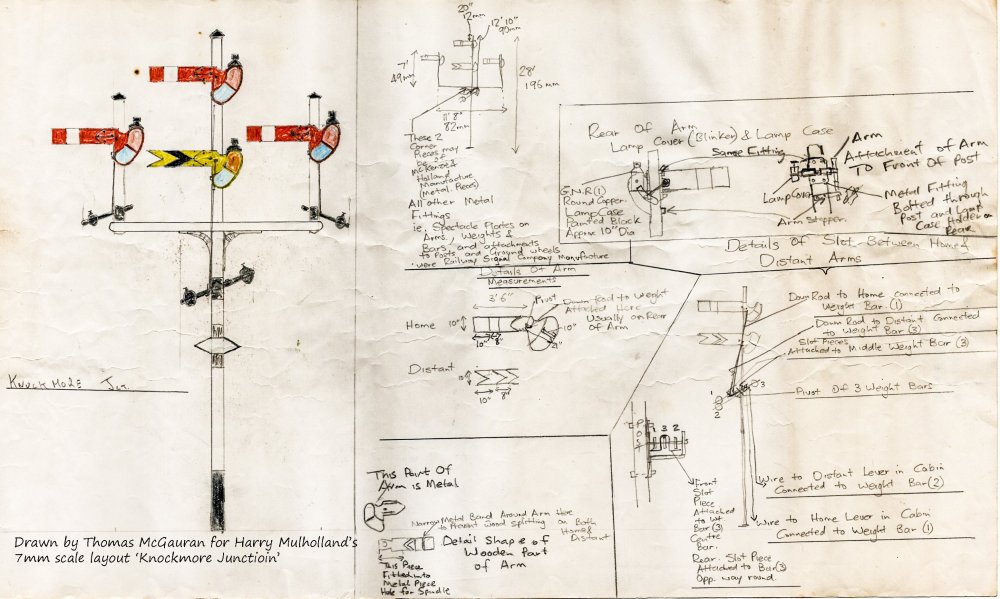 KNOCKMORE Jct.
Drawn by Thomas McGauran for Harry Mulholland's
7mm scale layout 'Knockmore Junctioin'
20"
12mm
12' 10"
90mm
7'
49mm
28'
196mm
11' 8"
82mm
These 2
Corner
Pieces may
be of
McKenzie &
Holland
Manufacture
(Metal Pieces)
All other Metal
Fittings
ie. Spectacle Plates on
Arms, Weights &
Bars, and attachments
to Posts and Ground wheels
were Railway Signal Company Manufacture
Details Of Arm
Measurements
3' 6"
Pivot
Down Rod to Weight
Attached Here
Usually on Rear
of Arm
Home
10"
10"
8"
10"
21"
Distant
10"
10"
8"
This Part Of
Arm is Metal
Narrow Metal Band Around Arm Here
to Prevent wood splitting on Both
Home &
Distant
Detail Shape of
Wooden Part
of Arm
This Piece
Fitted into
Metal Piece
Hole for Spindle
Rear Of Arm
Lamp Cover (Blinker) & Lamp Case
Same Fitting
G.N.R (I)
Round Copper
Lamp Case
Painted Black
Approx 10" Dia
Arm
Attachment of Arm
To Front Of Post
Lamp Cover
Arm Stopper
Metal Fitting
Bolted through
Post and Lamp
Case Holder on
Rear
Details Of Slot Between Home &
Distant Arms
Down Rod to Home connected to
Weight Bar (1)
Down Rod to Distant Connected
to Weight Bar (3)
Slot Pieces
Attached to Middle Weight Bar (3)
3
1
2
Pivot Of 3 Weight Bars
POST
1 3 2
Front
Slot
Piece
Attached
to Wt
Bar (3)
Centre
Bar.
Rear Slot Piece
Attached to Bar (3)
Opp. way round
Wire to Distant Lever in Cabin
Connected to Weight Bar (2)
Wire to Home Lever in Cabin
Connected to Weight Bar (1)